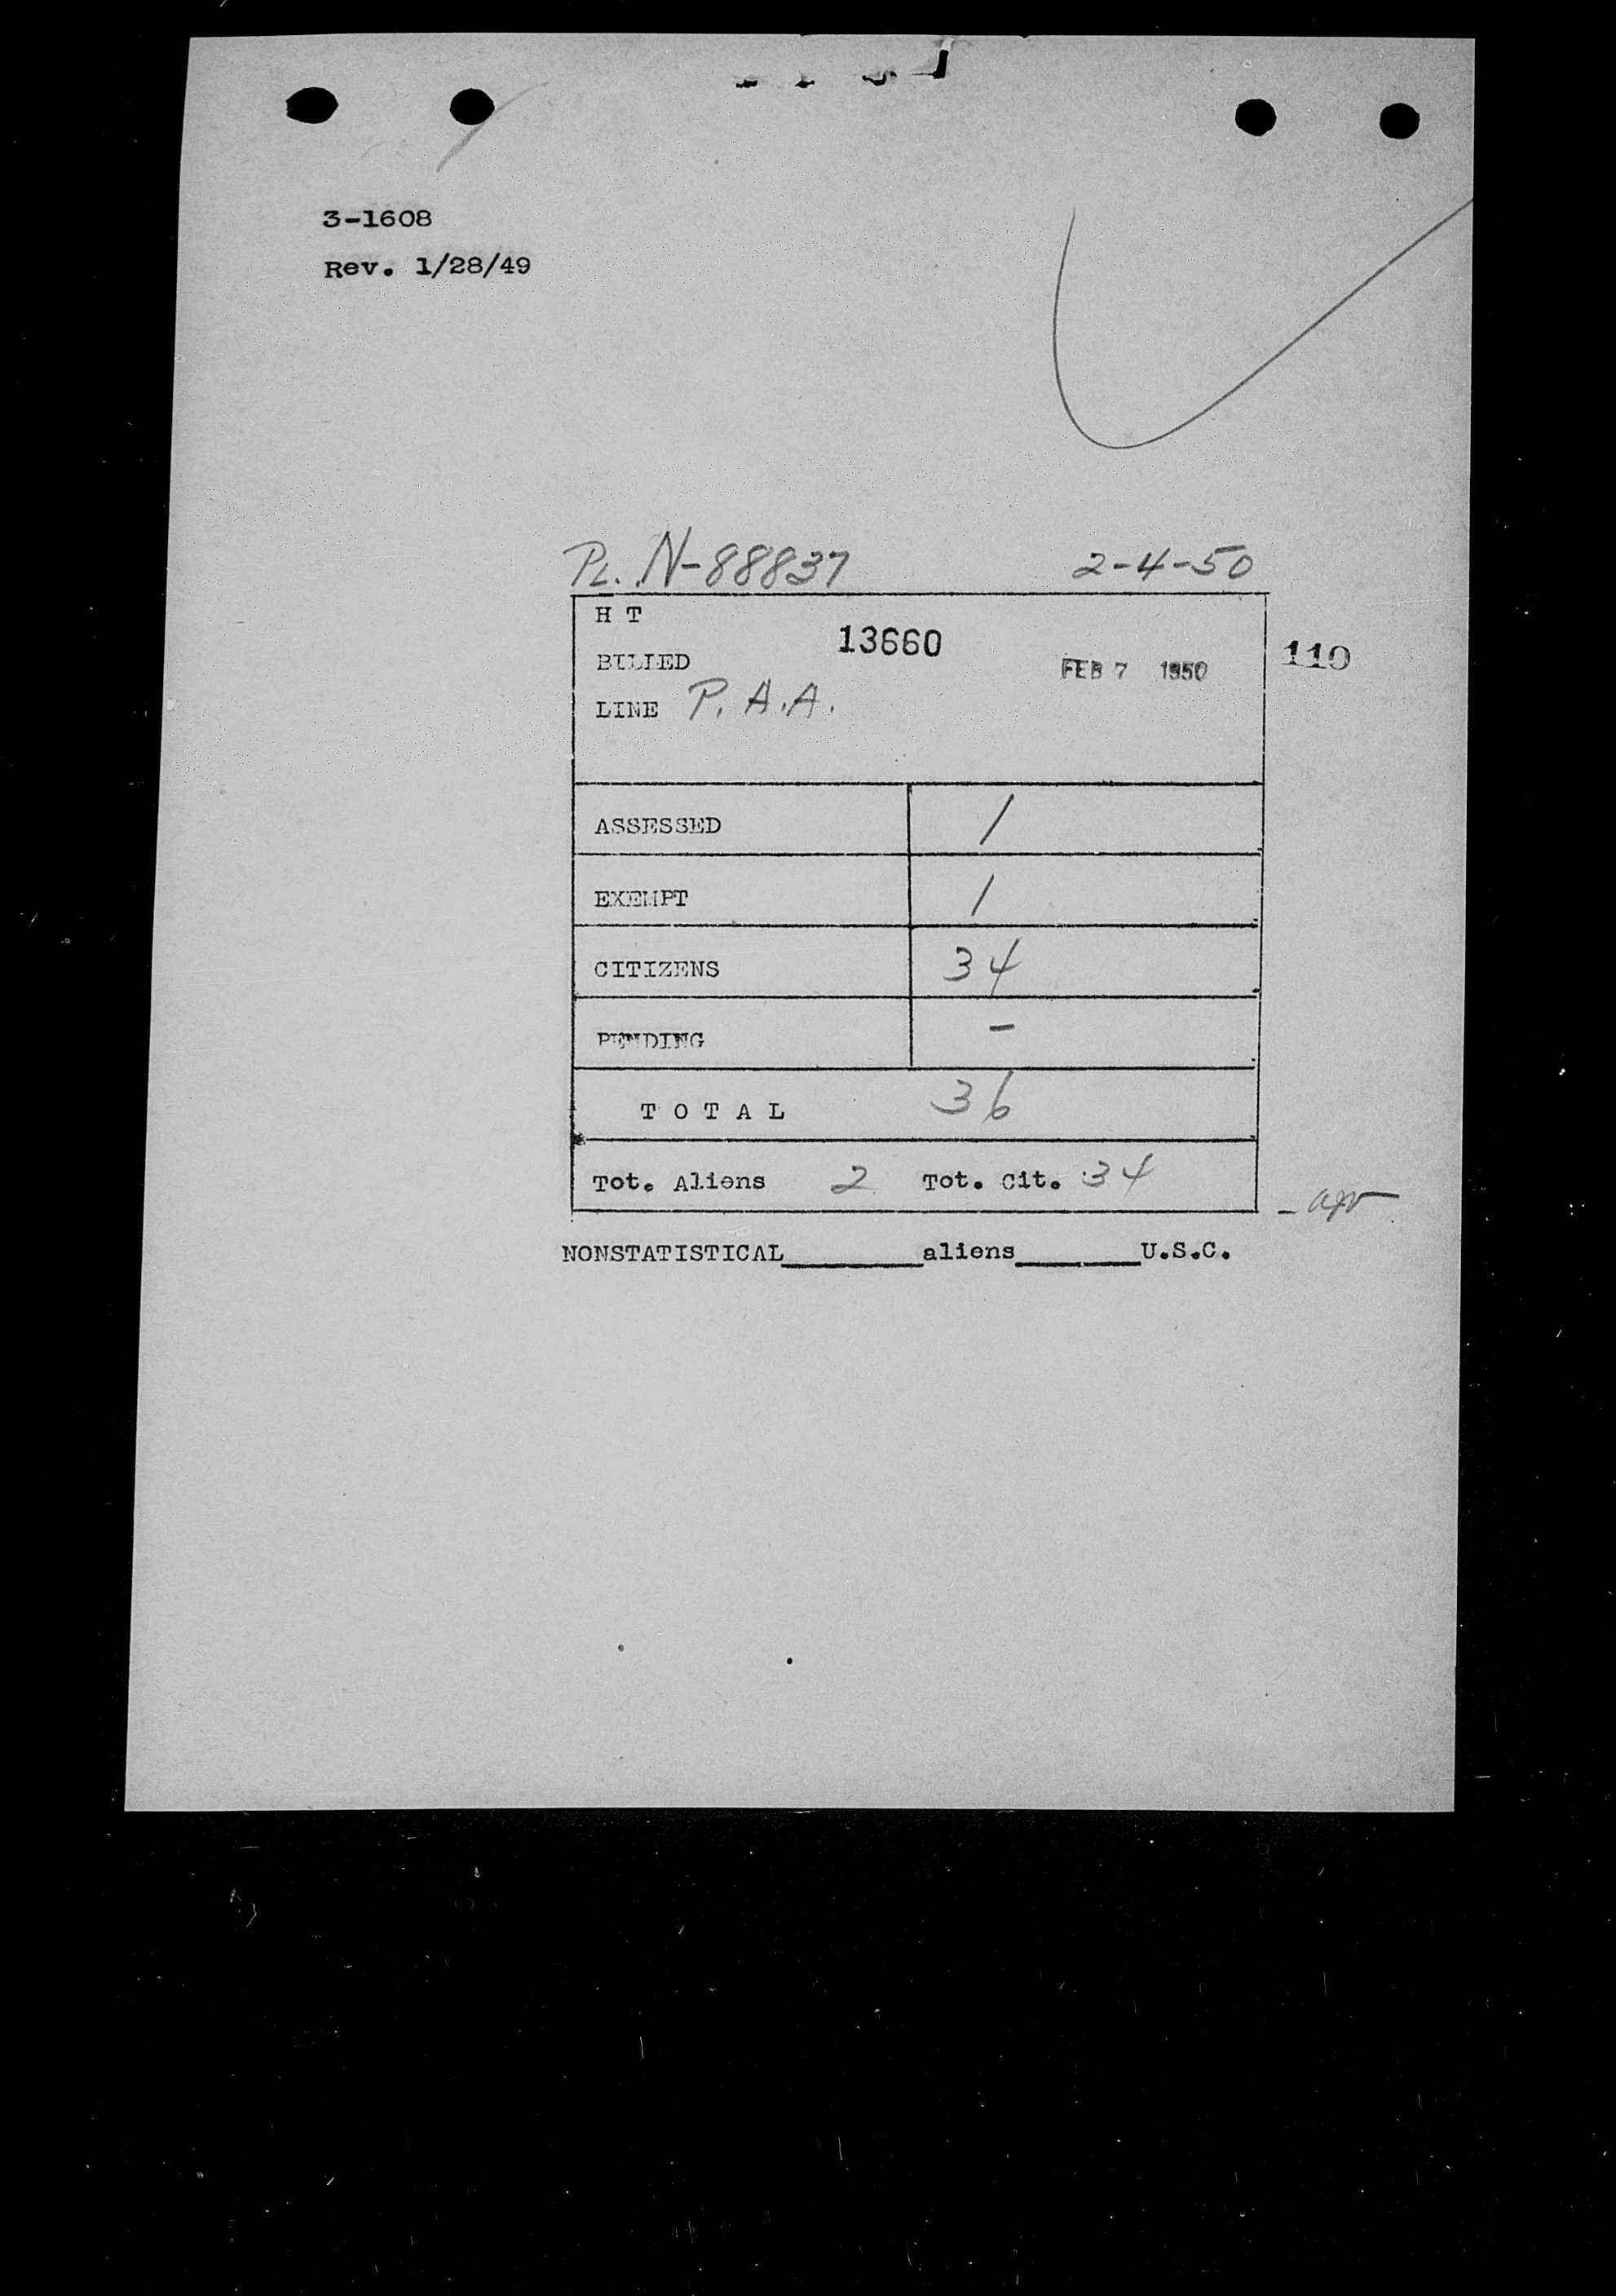 3-1608
Rev. 1/28/49
PL. N-88837 2-4-50
H T
13660
BILLED FEB 7 1950 110
LINE P.A.A.
ASSESSED 1
EXEMPT 1
CITIZENS 34
PENDING -
T O T A L 36
Tot. Aliens 2 Tot. Cit. 34
NONSTATISTICAL________aliens_______U.S.C.